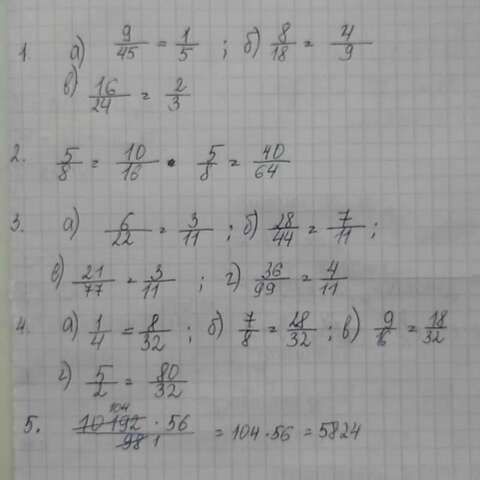 1. а) 9/45 = 1/5 ; б) 8/18 = 4/9
в) 16/24 = 2/3
2. 5/8 = 10/16 . 5/8 = 40/64
3. а) 6/22 = 3/11 ; б) 28/44 = 7/11 ;
в) 21/77 = 3/11 ; г) 36/99 = 4/11
4. а) 1/4 = 8/32 ; б) 7/8 = 28/32 ; в) 9/16 = 18/32
г) 5/2 = 80/32
104
5. 10192 · 56 / 98 1 = 104 · 56 = 5824